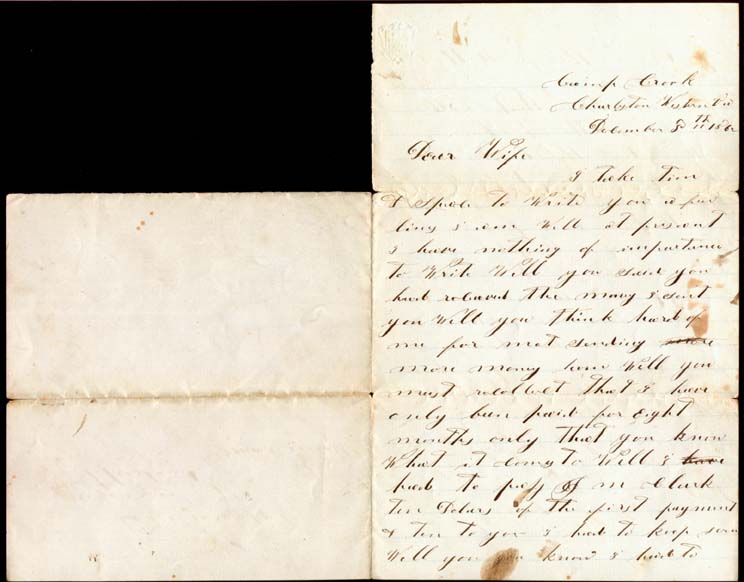 Camp Crook
Charlston Western Va
December 8th 1862
Dear Wife
I take time
& spece to Write you a few
lines I am Well at present
I have nothing of importance
to Write Will you said you
had recieved the mony I sent
you Will you think hard of
me for not sending more
more money hom Will you
must recollect that I have
only ben paid for Eight
months only that you know
What it comes to Will I have
had to pay S m Clark
ten Dolars of the first payment
& ten to you I had to keep som
Will you you know I had to